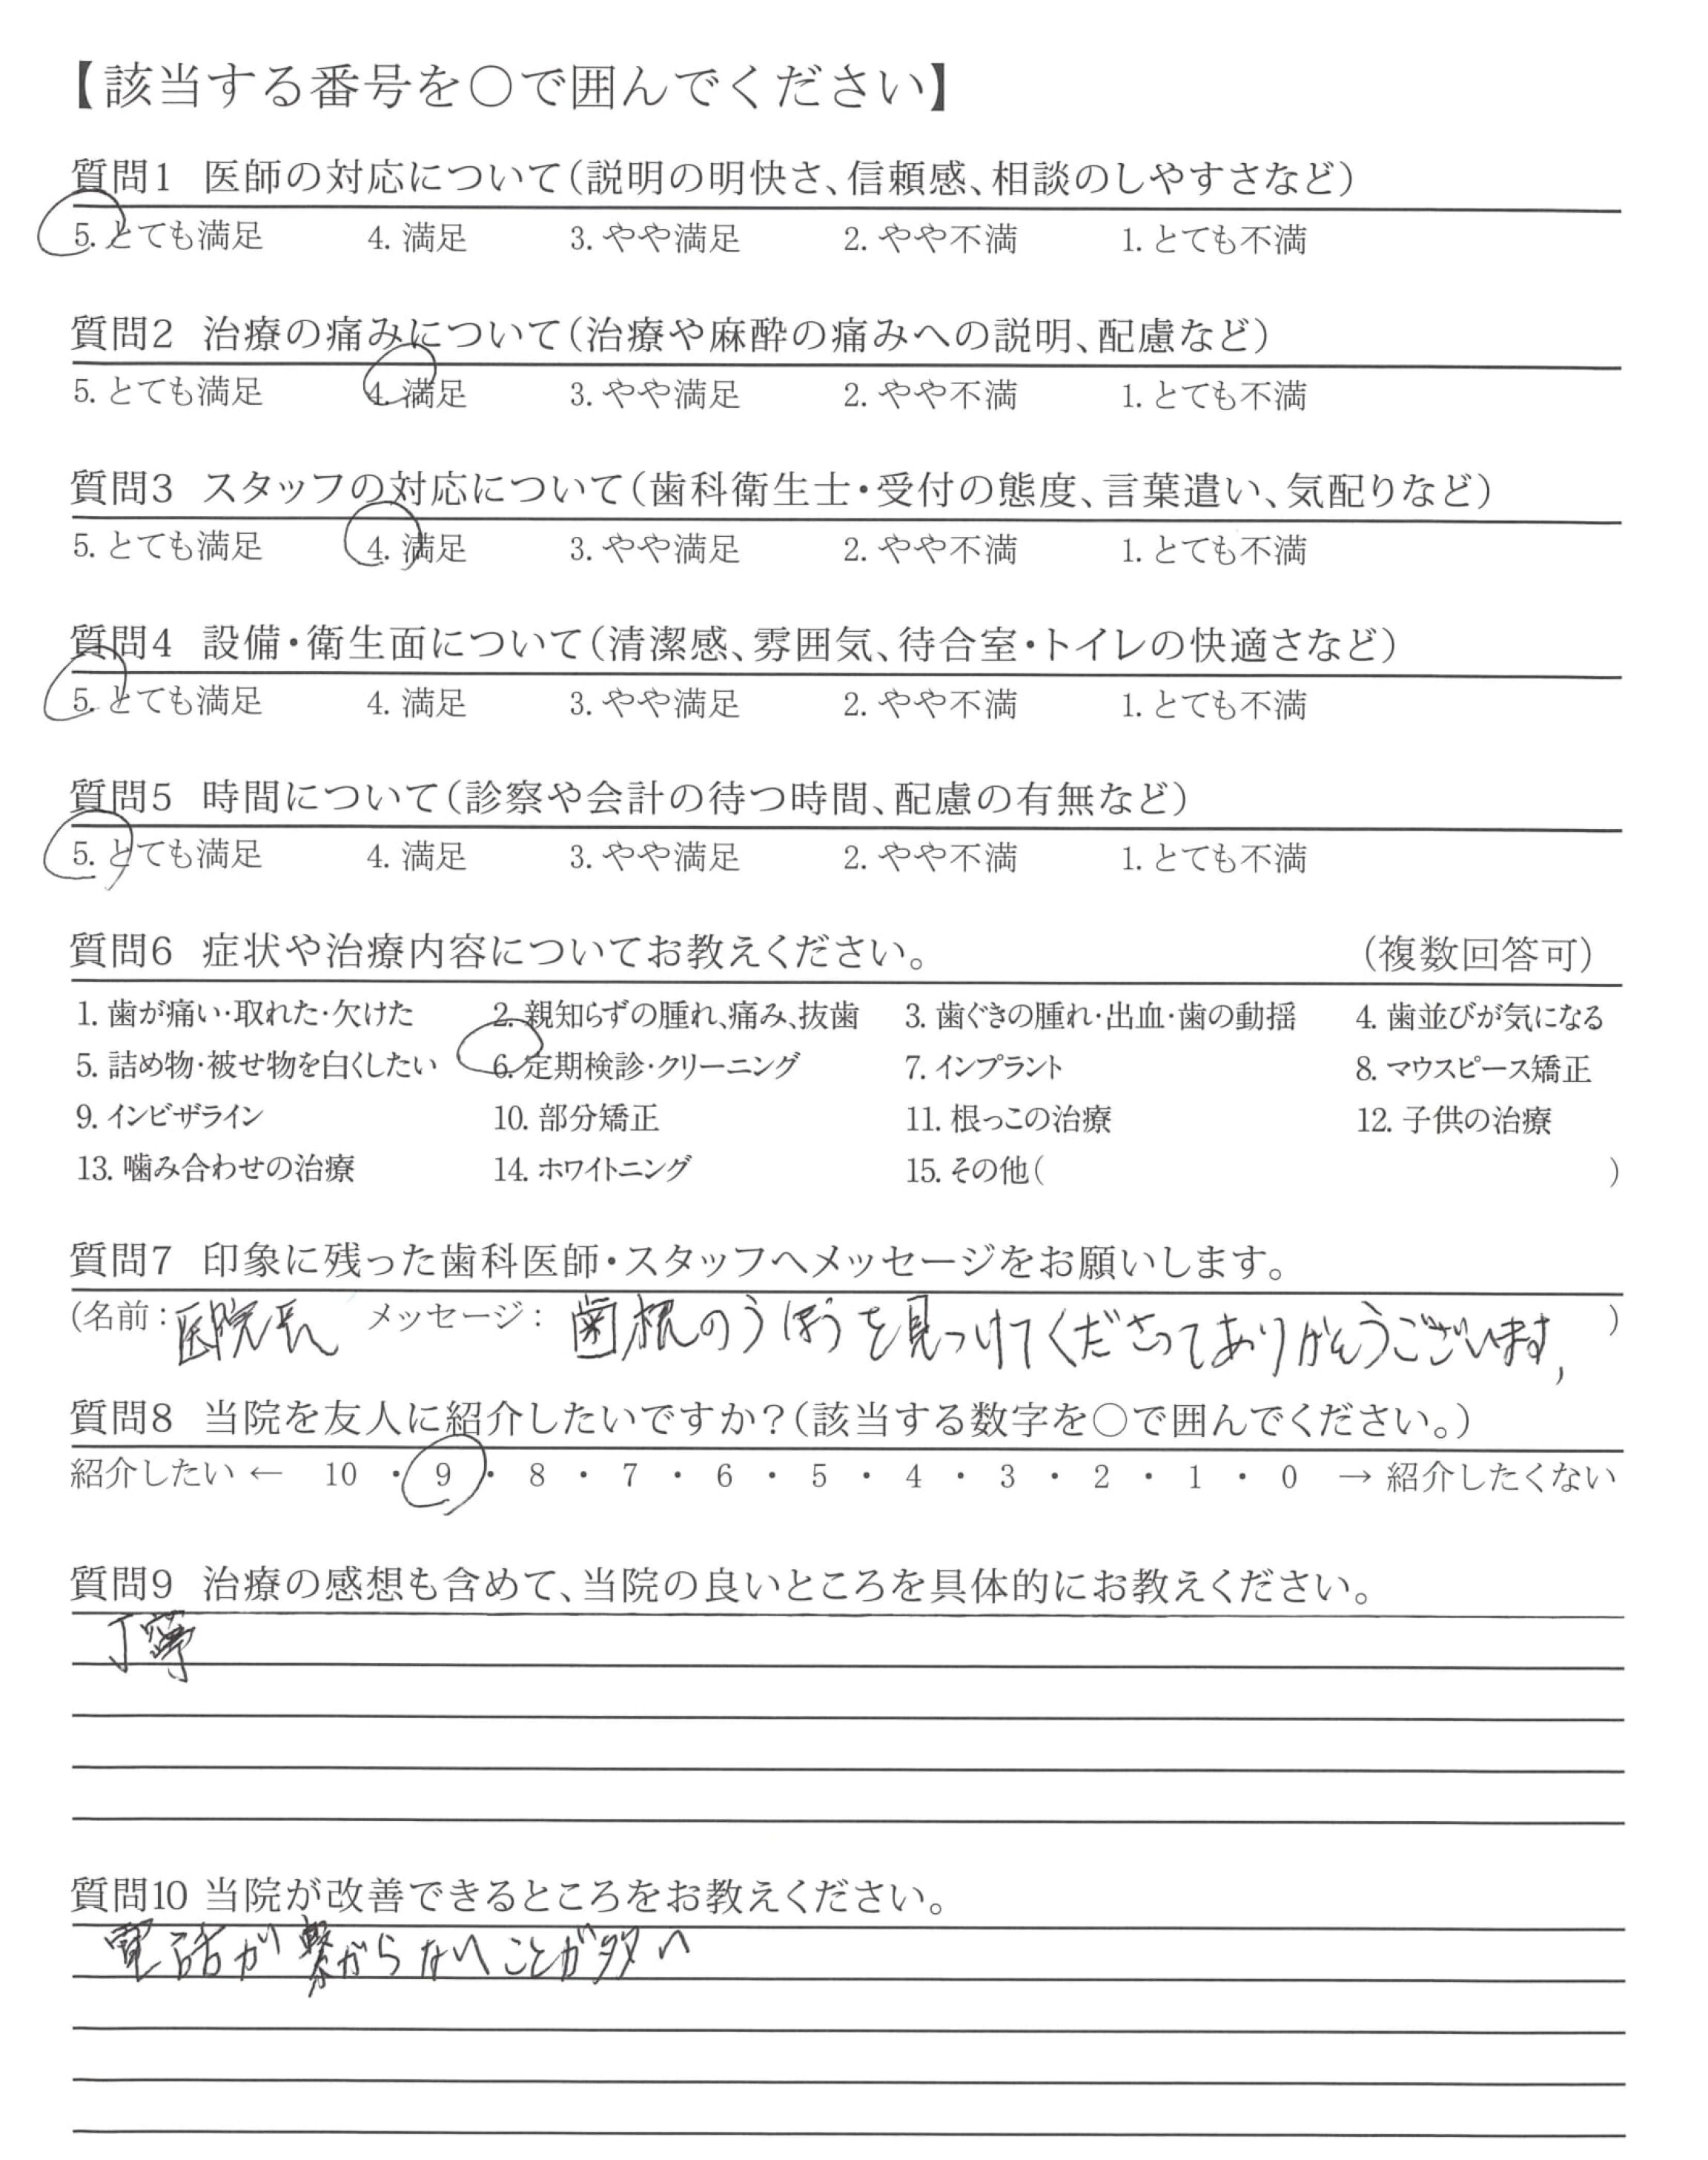 【該当する番号を○で囲んでください】
質問1 医師の対応について(説明の明快さ、信頼感、相談のしやすさなど)
5. とても満足 4. 満足 3. やや満足 2. やや不満 1. とても不満
質問2 治療の痛みについて(治療や麻酔の痛みへの説明、配慮など)
5. とても満足 4. 満足 3. やや満足 2. やや不満 1. とても不満
質問3 スタッフの対応について(歯科衛生士・受付の態度、言葉遣い、気配りなど)
5. とても満足 4. 満足 3. やや満足 2. やや不満 1. とても不満
質問4 設備・衛生面について(清潔感、雰囲気、待合室・トイレの快適さなど)
5. とても満足 4. 満足 3. やや満足 2. やや不満 1. とても不満
質問5 時間について(診察や会計の待つ時間、配慮の有無など)
5. とても満足 4. 満足 3. やや満足 2. やや不満 1. とても不満
質問6 症状や治療内容についてお教えください。 (複数回答可)
1. 歯が痛い・取れた・欠けた 2. 親知らずの腫れ、痛み、抜歯 3. 歯ぐきの腫れ・出血・歯の動揺 4. 歯並びが気になる
5. 詰め物・被せ物を白くしたい 6. 定期検診・クリーニング 7. インプラント 8. マウスピース矯正
9. インビザライン 10. 部分矯正 11. 根っこの治療 12. 子供の治療
13. 噛み合わせの治療 14. ホワイトニング 15. その他( )
質問7 印象に残った歯科医師・スタッフへメッセージをお願いします。
(名前:医院長 メッセージ: 歯根のうほうを見つけてくださってありがとうございます, )
質問8 当院を友人に紹介したいですか?(該当する数字を○で囲んでください。)
紹介したい ← 10 ・ 9 ・ 8 ・ 7 ・ 6 ・ 5 ・ 4 ・ 3 ・ 2 ・ 1 ・ 0 → 紹介したくない
質問9 治療の感想も含めて、当院の良いところを具体的にお教えください。
丁寧
質問10 当院が改善できるところをお教えください。
電話が繋がらないことが多い